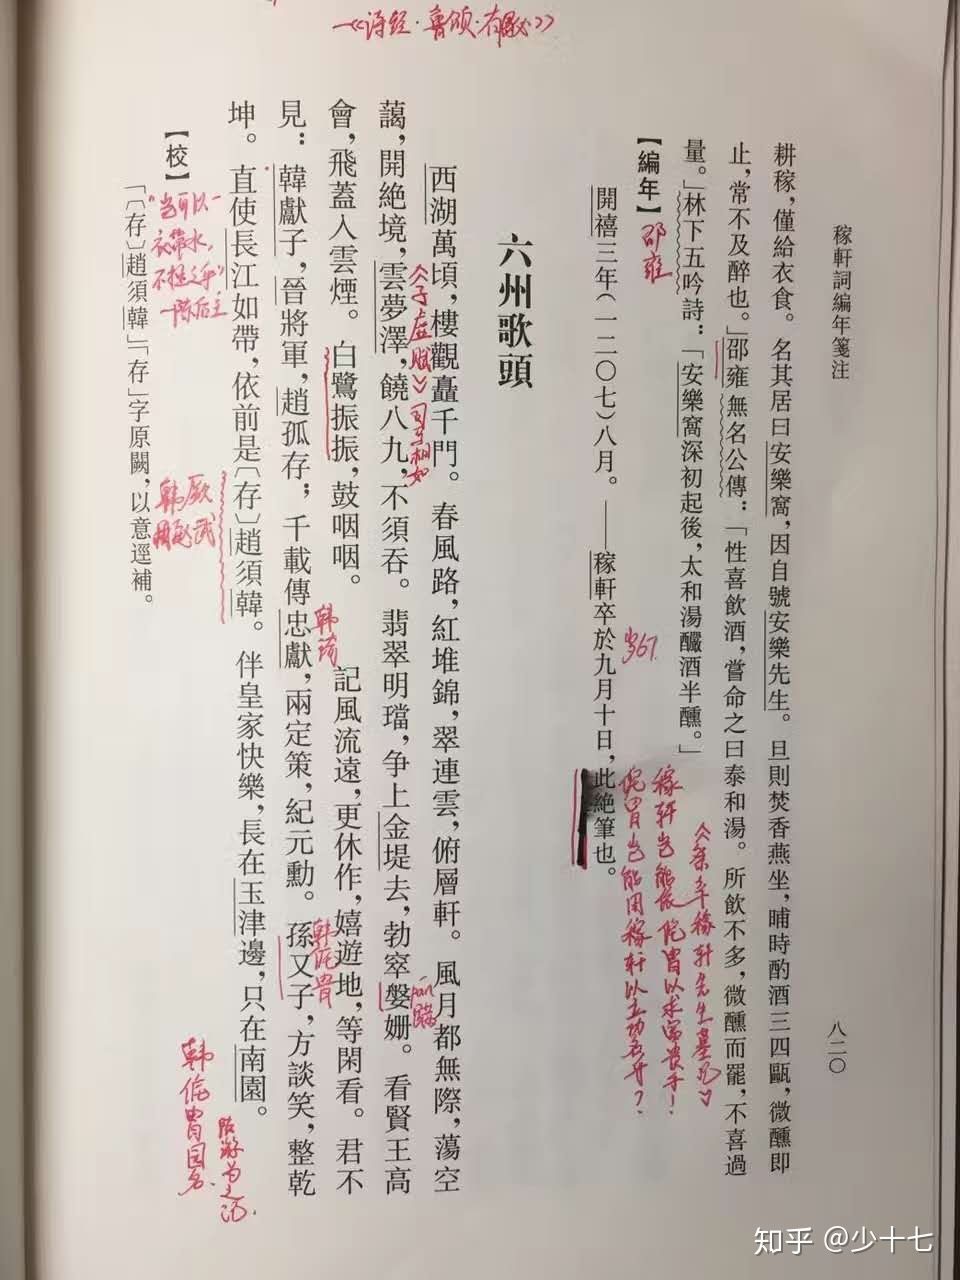 稼軒詞編年箋注
八二〇
耕稼，僅給衣食。名其居曰安樂窩，因自號安樂先生。旦則焚香燕坐，晡時酌酒三四甌，微醺即
止，常不及醉也。」邵雍無名公傳：「性喜飲酒，嘗命之曰泰和湯。所飲不多，微醺而罷，不喜過
量。」林下五吟詩：「安樂窩深初起後，太和湯釅酒半醺。」
【編年】
邵雍
開禧三年（一二〇七）八月。——稼軒卒於九月十日，此絕筆也。
岁67.
《祭辛稼轩先生墓记》
稼轩岂能依侂胄以求富贵乎！
侂胄岂能用稼轩以立功名者？
六州歌頭
西湖萬頃，樓觀矗千門。春風路，紅堆錦，翠連雲，俯層軒。風月都無際，蕩空
藹，開絕境，雲夢澤，饒八九，不須吞。翡翠明璫，争上金堤去，勃窣媻姍。看賢王高
會，飛蓋入雲煙。白鷺振振，鼓咽咽。　記風流遠，更休作，嬉遊地，等閑看。君不
見：韓獻子，晉將軍，趙孤存；千載傳忠獻，兩定策，紀元勳。孫又子，方談笑，整乾
坤。直使長江如帶，依前是〔存〕趙須韓。伴皇家快樂，長在玉津邊，只在南園。
《子虚赋》司马相如
韩琦
韩侂胄
pán 跚
—《诗经·鲁颂·有駜》
【校】
「〔存〕趙須韓」「存」字原闕，以意逕補。
"岂可以一
衣带水，
不拯之乎"
—陈后主
韩厥
韩侂胄园名.
知乎 @少十七